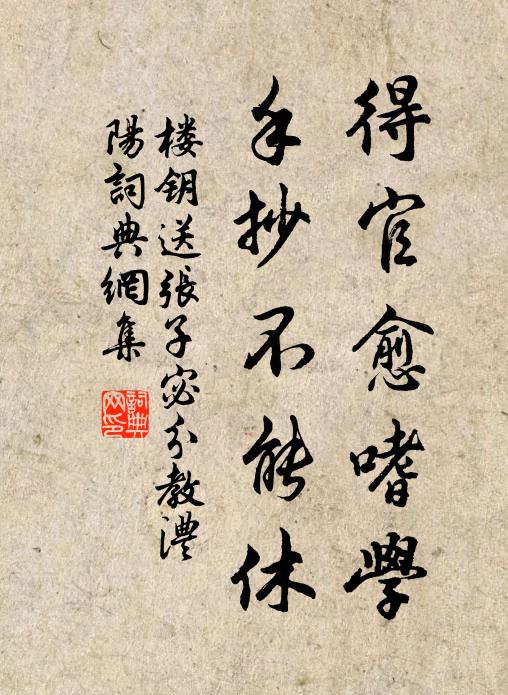 得官愈嗜學
手抄不能休
楼钥送張子宓分教澧
陽詞典網集
詞典
网印